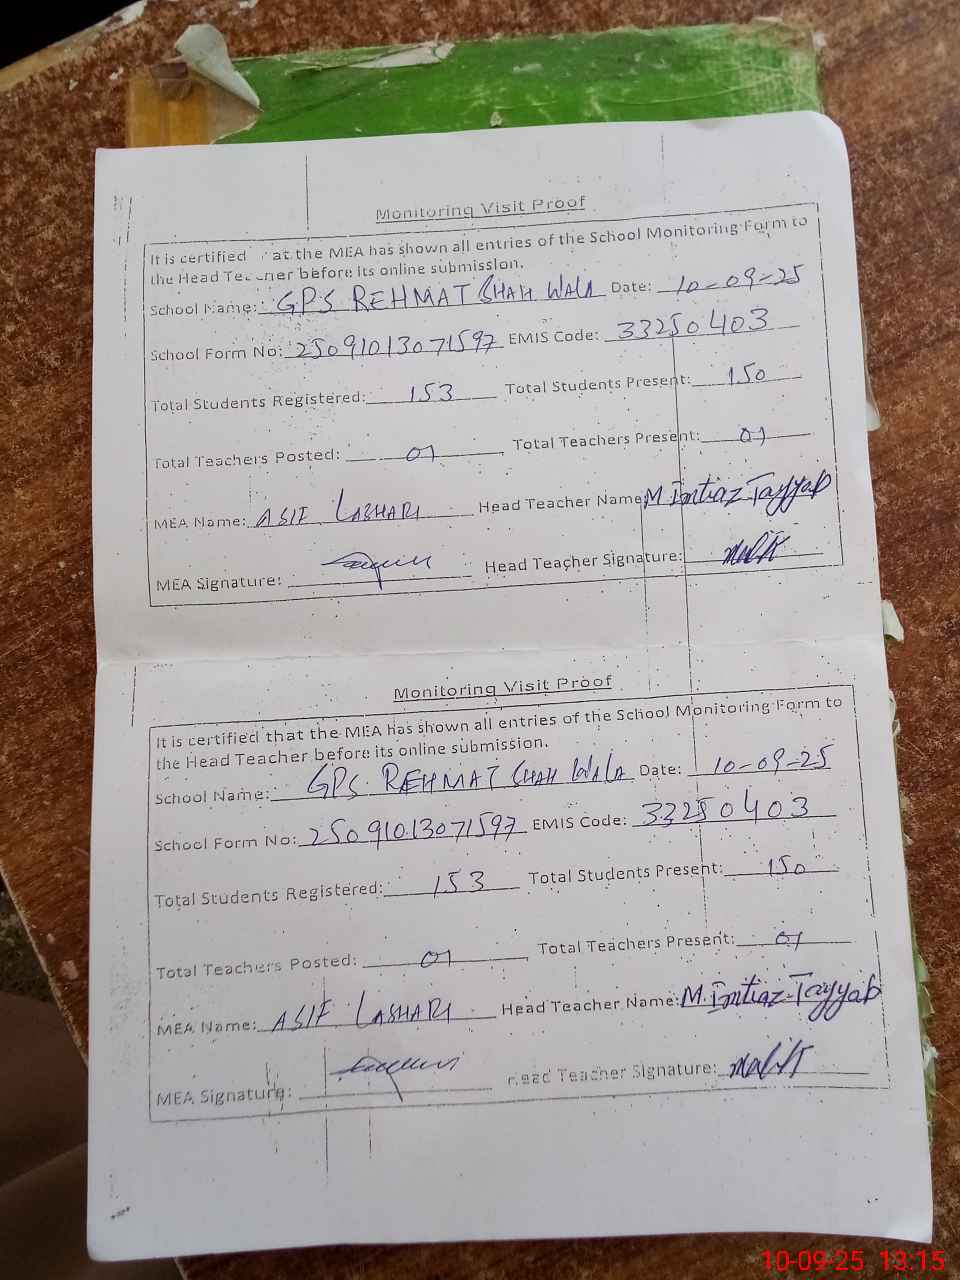 Monitoring Visit Proof
It is certified at the MEA has shown all entries of the School Monitoring Form to
the Head Teacher before its online submission.
School Name: GPS REHMAT SHAH WALA Date: 10-09-25
School Form No: 25091013071597 EMIS Code: 33250403
Total Students Registered: 153 Total Students Present: 150
Total Teachers Posted: 07 Total Teachers Present: 07
MEA Name: ASIF LASHARI Head Teacher Name M. Imtiaz Tayyab
MEA Signature: Head Teacher Signature: Malik
Monitoring Visit Proof
It is certified that the MEA has shown all entries of the School Monitoring Form to
the Head Teacher before its online submission.
School Name: GPS REHMAT SHAH WALA Date: 10-09-25
School Form No: 25091013071597 EMIS Code: 33250403
Total Students Registered: 153 Total Students Present: 150
Total Teachers Posted: 07 Total Teachers Present: 07
MEA Name: ASIF LASHARI Head Teacher Name: M. Imtiaz Tayyab
MEA Signature: Head Teacher Signature: Malik
10-09-25 13:15